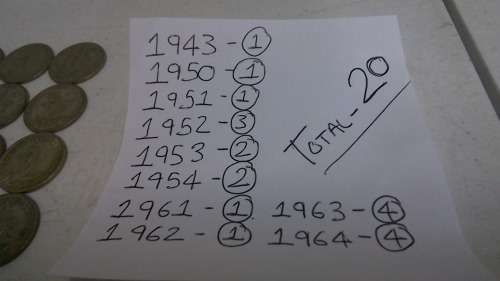 1943 - 1
1950 - 1
1951 - 1
1952 - 3
1953 - 2
1954 - 2
1961 - 1
1962 - 1
1963 - 4
1964 - 4
TOTAL - 20